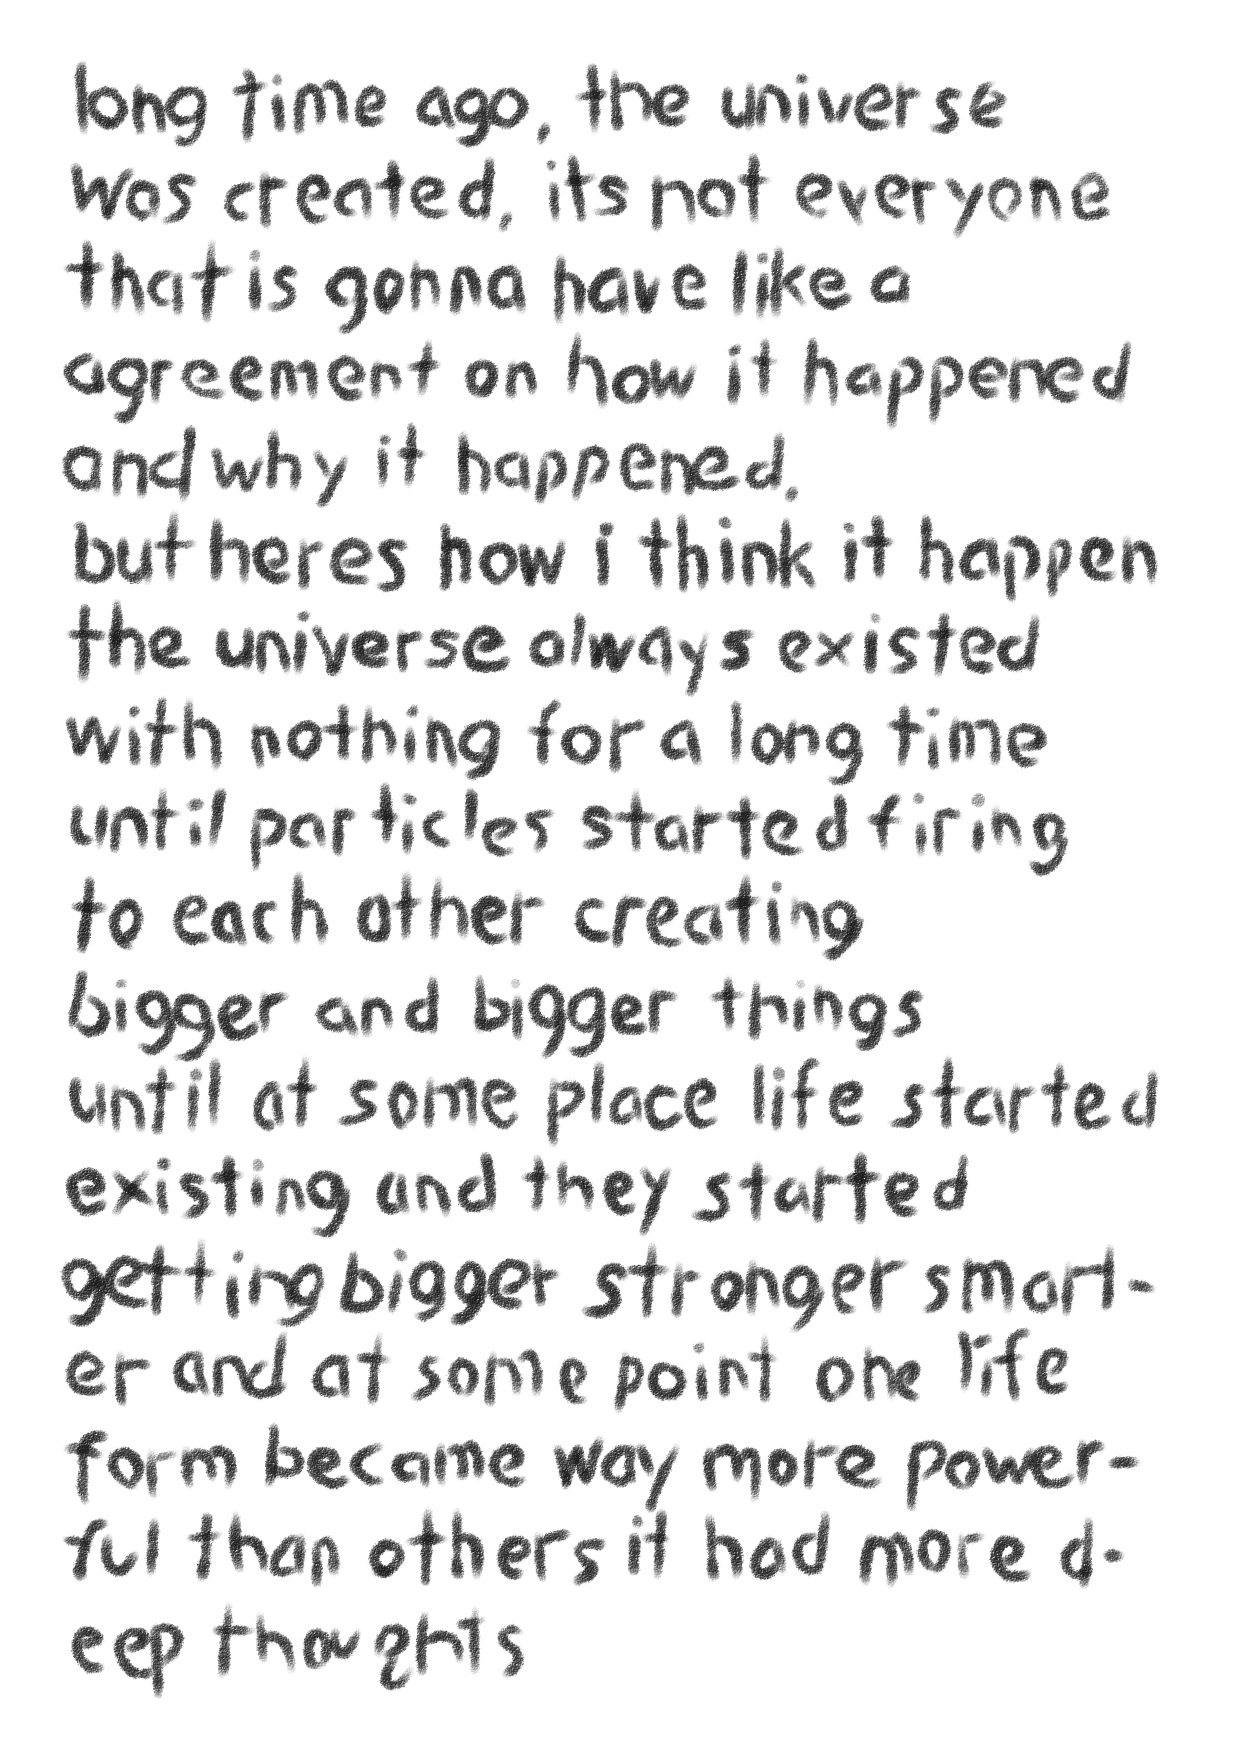 long time ago, the universe
was created, its not everyone
that is gonna have like a
agreement on how it happened
and why it happened.
but heres how i think it happen
the universe always existed
with nothing for a long time
until particles started firing
to each other creating
bigger and bigger things
until at some place life started
existing and they started
getting bigger stronger smart-
er and at some point one life
form became way more power-
ful than others it had more d-
eep thoughts